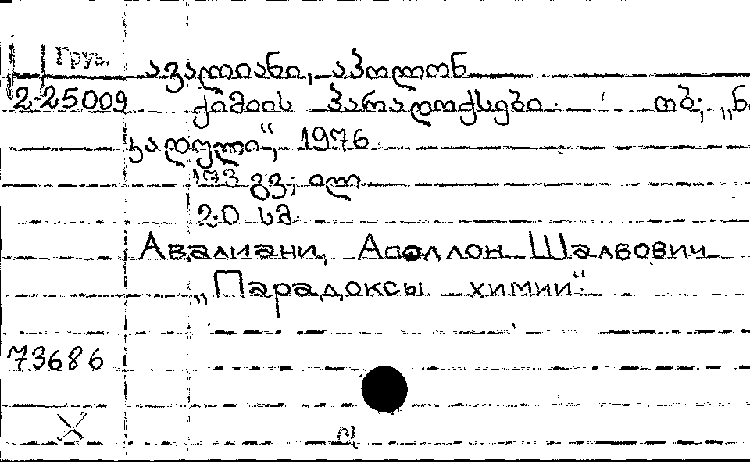 Груз.
ავალიანი, აპოლონ
2-25009 ქიმიის პარადოქსები. თბ; „ნა
კადული“, 1976.
173 გვ; ილ
20 სმ.
Авалиани, Аполлон Шалвович
„Парадоксы химии“.
73686